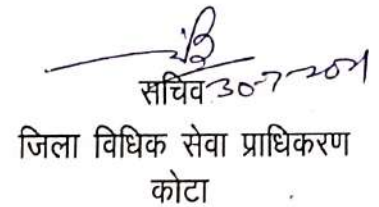 सचिव 30-7-2021
जिला विधिक सेवा प्राधिकरण
कोटा